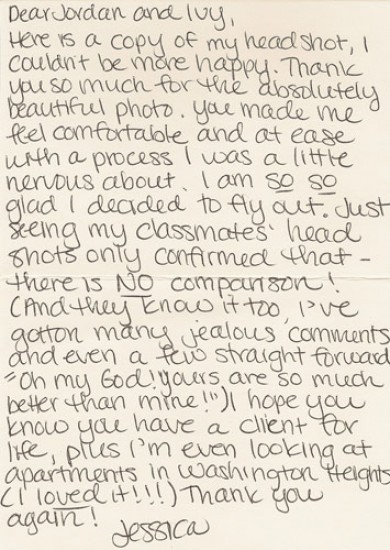 Dear Jordan and Ivy,
Here is a copy of my head shot, I
couldn't be more happy. Thank
you so much for the absolutely
beautiful photo. You made me
feel comfortable and at ease
with a process I was a little
nervous about. I am so so
glad I decided to fly out. Just
seeing my classmates' head
shots only confirmed that -
there is NO comparison!
(And they know it too, I've
gotton many jealous comments
and even a few straight forward
"Oh my God! yours are so much
better than mine!") I hope you
know you have a client for
life, plus I'm even looking at
apartments in Washington Heights
(I loved it!!!) Thank you
again!
Jessica